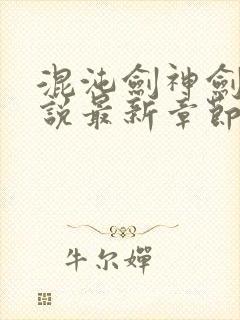 混沌劍神劍
說最新章節
牛尔嬋